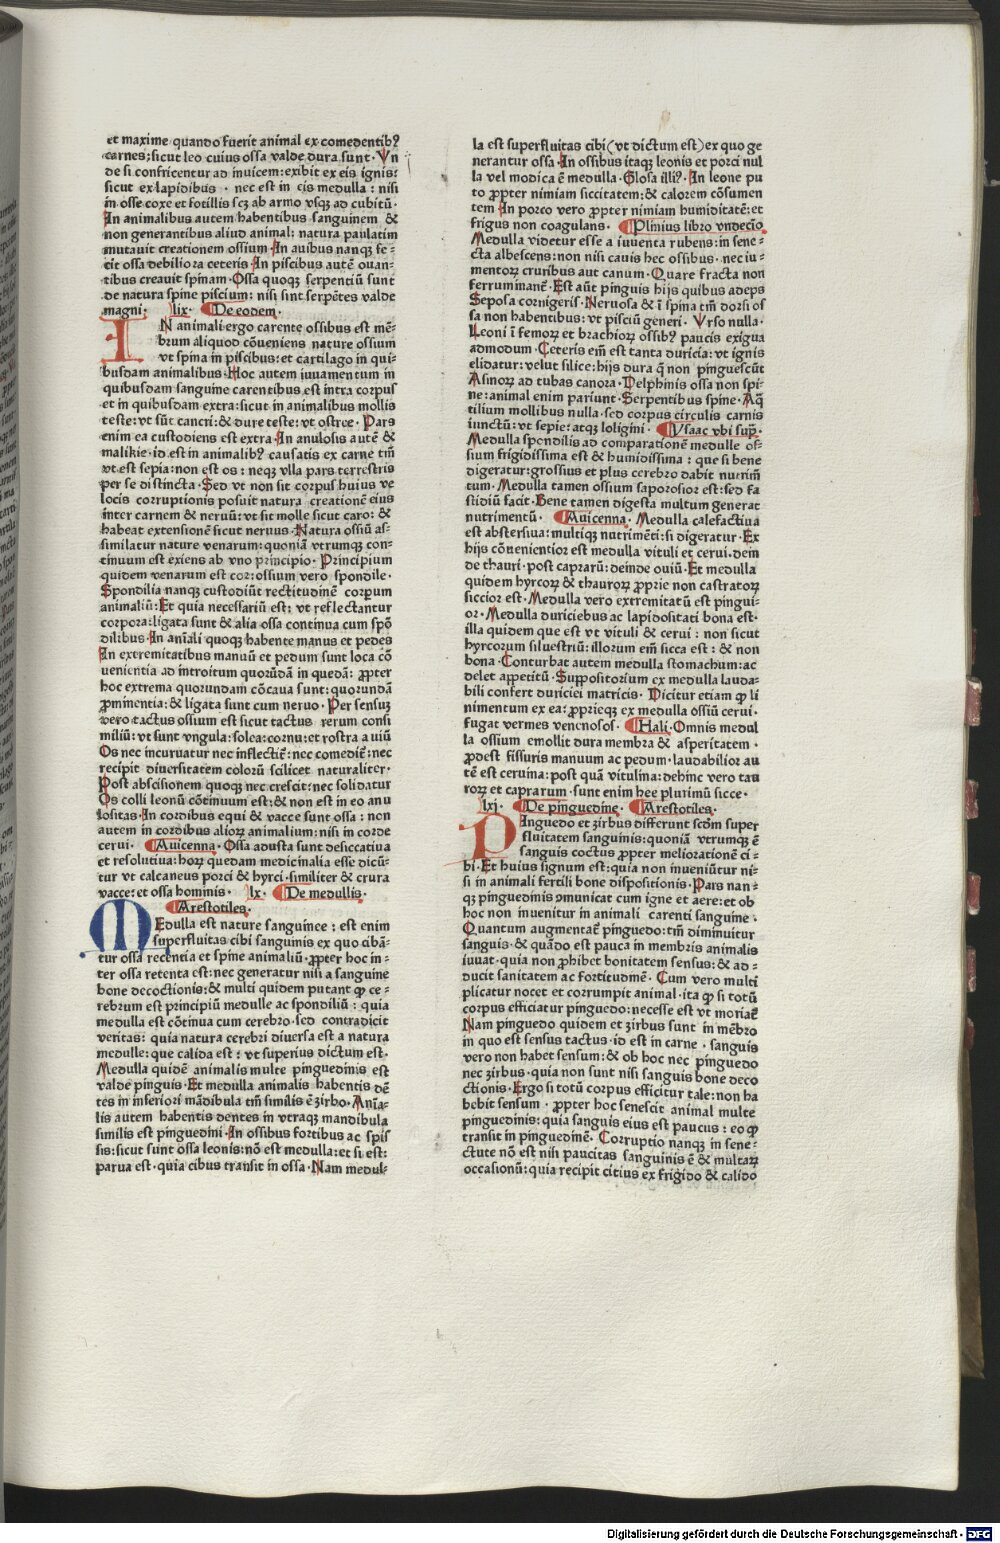 et maxime quando fuerit animal ex comedentibꝰ
carnes; sicut leo cuius ossa valde dura sunt · Vn
de si confricentur ad inuicem: exibit ex eis ignis:
sicut ex lapidibus · nec est in eis medulla : nisi
in osse coxe et fotillis scꝫ ab armo vsqꝫ ad cubitū ·
In animalibus autem habentibus sanguinem &
non generantibus aliud animal: natura paulatim
mutauit creationem ossium · In auibus nanqꝫ fe⸗
cit ossa debiliora ceteris · In piscibus autē ouan⸗
tibus creauit spinam · Ossa quoqꝫ serpentiū sunt
de natura spine piscium: nisi sint serpētes valde
magni · lix · De eodem ·
IN animali ergo carente ossibus est mē⸗
brum aliquod cōueniens nature ossium
vt spina in piscibus: et cartilago in qui⸗
busdam animalibus · Hoc autem iuuamentum in
quibusdam sanguine carentibus est intra corpus
et in quibusdam extra: sicut in animalibus mollis
teste: vt sūt cancri: & dure teste: vt ostree · Pars
enim ea custodiens est extra · In anulosis autē &
malikie · id est in animalibꝰ causatis ex carne tm̄
vt est sepia: non est os : neqꝫ vlla pars terrestris
per se distincta · Sed vt non sit corpus huius ve
locis corruptionis posuit natura creationē eius
inter carnem & neruū: vt sit molle sicut caro: &
habeat extensionē sicut neruus · Natura ossiū as⸗
similatur nature venarum: quoniā vtrumqꝫ con⸗
tinuum est exiens ab vno principio · Principium
quidem venarum est cor: ossium vero spondile ·
Spondilia nanqꝫ custodiūt rectitudinē corporum
animaliū: Et quia necessariū est: vt reflectantur
corpora: ligata sunt & alia ossa continua cum spō
dilibus · In aniāli quoqꝫ habente manus et pedes
In extremitatibus manuū et pedum sunt loca cō
uenientia ad introitum quorūdā in quedā: ꝓpter
hoc extrema quorundam cōcaua sunt: quorundā
ꝓminentia: & ligata sunt cum neruo · Per sensuꝫ
vero tactus ossium est sicut tactus rerum consi
miliū: vt sunt vngula: solea: cornu: et rostra auiū
Os nec incuruatur nec inflectit̄: nec comedit̄: nec
recipit diuersitatem colorū scilicet naturaliter ·
Post abscisionem quoqꝫ nec crescit: nec solidatur
Os colli leonū cōtinuum est: & non est in eo anu
lositas · In cordibus equi & vacce sunt ossa : non
autem in cordibus alioꝝ animalium: nisi in corde
cerui · Auicenna · Ossa adusta sunt desiccatiua
et resolutiua: hoꝝ quedam medicinalia esse dicū⸗
tur vt calcaneus porci & hyrci · similiter & crura
vacce: et ossa hominis · lx · De medullis ·
Arestotiles ·
MEdulla est nature sanguinee : est enim
superfluitas cibi sanguinis ex quo cibā⸗
tur ossa recentia et spine animaliū · ꝓpter hoc in⸗
ter ossa retenta est: nec generatur nisi a sanguine
bone decoctionis: & multi quidem putant ꝙ ce⸗
rebrum est principiū medulle ac spondiliū : quia
medulla est cōtinua cum cerebro · sed contradicit
veritas: quia natura cerebri diuersa est a natura
medulle: que calida est : vt superius dictum est ·
Medulla quidē animalis multe pinguedinis est
valde pinguis · Et medulla animalis habentis dē
tes in inferiori mādibula tm̄ similis ē zirbo · Aniā⸗
lis autem habentis dentes in vtraqꝫ mandibula
similis est pinguedini · In ossibus fortibus ac spis
sis: sicut sunt ossa leonis: nō est medulla: et si est:
parua est · quia cibus transit in ossa · Nam medul⸗
la est superfluitas cibi (vt dictum est) ex quo ge
nerantur ossa · In ossibus itaqꝫ leonis et porci nul
la vel modica ē medulla · Glosa illiꝰ · In leone pu
to ꝓpter nimiam siccitatem: & calorem cōsumen
tem · In porco vero ꝓpter nimiam humiditatē: et
frigus non coagulans · Plinius libro vndecīo
Medulla videtur esse a iuuenta rubens: in sene⸗
cta albescens: non nisi cauis hec ossibus · nec iu⸗
mentoꝝ cruribus aut canum · Quare fracta non
ferruminant̄ · Est aūt pinguis hijs quibus adeps
Seposa cornigeris · Neruosa & ī spina tm̄ dorsi os
sa non habentibus: vt pisciū generi · Vrso nulla ·
Leoni ī femoꝝ et brachioꝝ ossibꝰ paucis exigua
admodum · Ceteris em̄ est tanta duricia: vt ignis
elidatur: velut silice: hijs dura q̄ non pinguescūt
Asinoꝝ ad tubas canora · Delphinis ossa non spi⸗
ne: animal enim pariunt · Serpentibus spine · Aq̄
tilium mollibus nulla · sed corpus circulis carnis
iunctū: vt sepie: atqꝫ loligini · Ysaac vbi sup̄ ·
Medulla spondilis ad comparationē medulle os⸗
sium frigidissima est & humidissima : que si bene
digeratur: grossius et plus cerebro dabit nutrim̄
tum · Medulla tamen ossium saporosior est: sed fa
stidiū facit · Bene tamen digesta multum generat
nutrimentū · Auicenna · Medulla calefactiua
est abstersiua: multiqꝫ nutrimēti: si digeratur · Ex
hijs cōuenientior est medulla vituli et cerui · dein
de thauri · post caprarū: deinde ouiū · Et medulla
quidem hyrcoꝝ & thauroꝝ ꝓprie non castratoꝝ
siccior est · Medulla vero extremitatū est pingui⸗
or · Medulla duriciebus ac lapidositati bona est ·
illa quidem que est vt vituli & cerui : non sicut
hyrcorum siluestriū: illorum em̄ sicca est : & non
bona · Conturbat autem medulla stomachum: ac
delet appetitū · Suppositorium ex medulla lauda⸗
bili confert duriciei matricis · Dicitur etiam ꝙ li
nimentum ex ea: ꝓprieqꝫ ex medulla ossiū cerui ·
fugat vermes venenosos · Hali · Omnis medul
la ossium emollit dura membra & asperitatem ·
ꝓdest fissuris manuum ac pedum · laudabilior au
tē est ceruina: post quā vitulina: dehinc vero tau
roꝝ et caprarum · sunt enim hee plurimū sicce ·
lxj · De pinguedine · Arestotiles ·
PInguedo et zirbus differunt scdm super
fluitatem sanguinis: quoniā vtrumqꝫ ē
sanguis coctus ꝓpter meliorationē ci⸗
bi · Et huius signum est: quia non inueniūtur ni⸗
si in animali fertili bone dispositionis · Pars nan⸗
qꝫ pinguedinis ꝯmunicat cum igne et aere: et ob
hoc non inuenitur in animali carenti sanguine ·
Quantum augmentat̄ pinguedo: tm̄ diminuitur
sanguis · & quādo est pauca in membris animalis
iuuat · quia non ꝓhibet bonitatem sensus: & ad⸗
ducit sanitatem ac fortitudinē · Cum vero multi
plicatur nocet et corrumpit animal · ita ꝙ si totū
corpus efficiatur pinguedo: necesse est vt moriat̄
Nam pinguedo quidem et zirbus sunt in mēbro
in quo est sensus tactus · id est in carne · sanguis
vero non habet sensum: & ob hoc nec pinguedo
nec zirbus · quia non sunt nisi sanguis bone deco
ctionis · Ergo si totū corpus efficitur tale: non ha
bebit sensum · ꝓpter hoc senescit animal multe
pinguedinis: quia sanguis eius est paucus : eo ꝙ
transit in pinguedinē · Corruptio nanqꝫ in sene⸗
ctute nō est nisi paucitas sanguinis ē & multaꝝ
occasionū: quia recipit citius ex frigido & calido
Digitalisierung gefördert durch die Deutsche Forschungsgemeinschaft · DFG